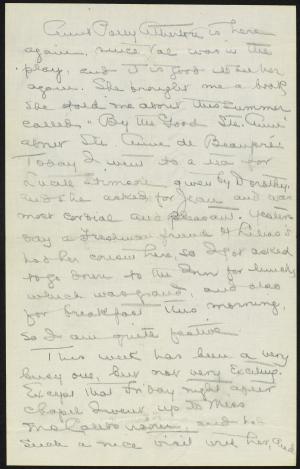 Aunt Percy Atherton is here
again, since Val was in the
play, and it is good to see her
again. She brought me a book
she told me about this summer
called "By the Good Ste. Anne"
about Ste. Anne de Beaupré.
Today I went to a tea for
Lucile given by Dorothy,
and she asked for Jean and was
most cordial and pleasant. Yester-
day a Freshman friend of Lilias's
had her cousin here, so I got asked
to go down to the Inn for lunch
which was grand, and also
for breakfast this morning,
so I am quite festive.
This week has been a very
busy one, but not very exciting.
Except that Friday night after
Chapel I went up to Miss
room, and had
such a nice visit with her, and